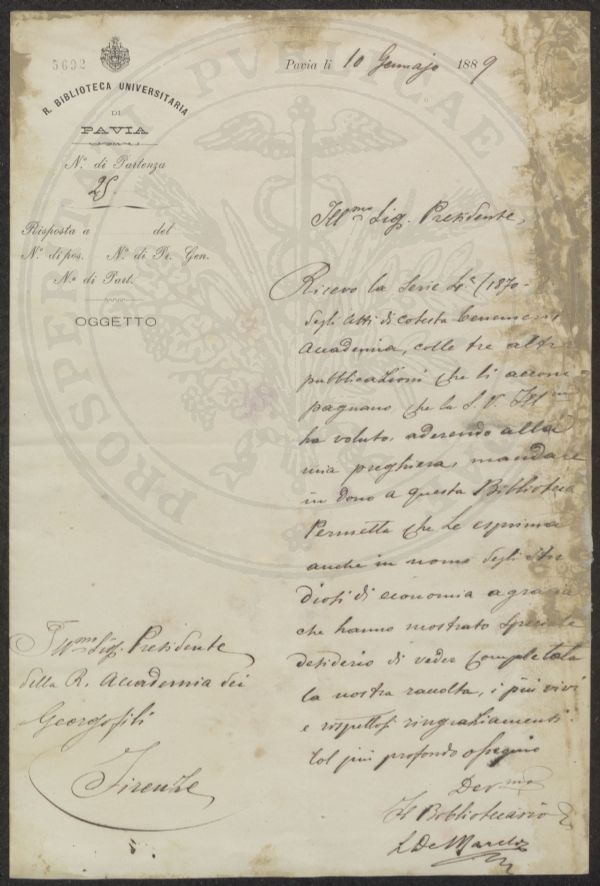 5692
R. BIBLIOTECA UNIVERSITARIA
DI
PAVIA
N.o di Partenza
25.
Risposta a del
N.o di pos. N.o di Pr. Gen.
N.o di Part.
OGGETTO
Pavia li 10 Gennajo 1889
Ill.mo Sig. Presidente,
Ricevo la Serie 4.a (1870-
degli Atti di cotesta benemeri
Accademia, colle tre altr
pubblicazioni che li accom
pagnano, che la S. V. Ill.ma
ha voluto, aderendo alla
mia preghiera, mandare
in dono a questa Biblioteca
Permetta che Le esprima
anche in nome degli stu
diosi di economia agraria
che hanno mostrato speciale
desiderio di veder completata
la nostra raccolta, i più vivi
e rispettosi ringraziamenti.
Col più profondo ossequio
Dev.mo
Il Bibliotecario
L De Marchi
Ill.mo Sig. Presidente
della R. Accademia dei
Georgofili
Firenze
PROSPERITATI PVBLICAE